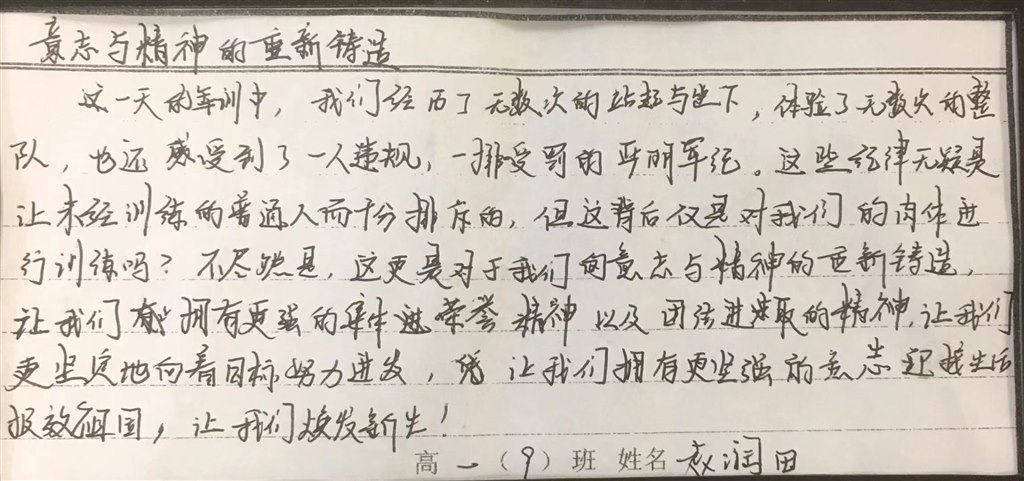 意志与精神的重新铸造
这一天的军训中，我们经历了无数次的站起与坐下，体验了无数次的整
队，也还感受到了一人违规，一排受罚的严明军纪。这些纪律无疑是
让未经训练的普通人而十分排斥的，但这背后仅是对我们的肉体进
行训练吗？不尽然是，这更是对于我们的意志与精神的重新铸造，
让我们拥有更强的集体荣誉精神以及团结进取的精神，让我们
更坚定地向着目标努力进发，让我们拥有更坚强的意志 生活
报效祖国，让我们焕发新生！
高一（9）班 姓名 赵润田